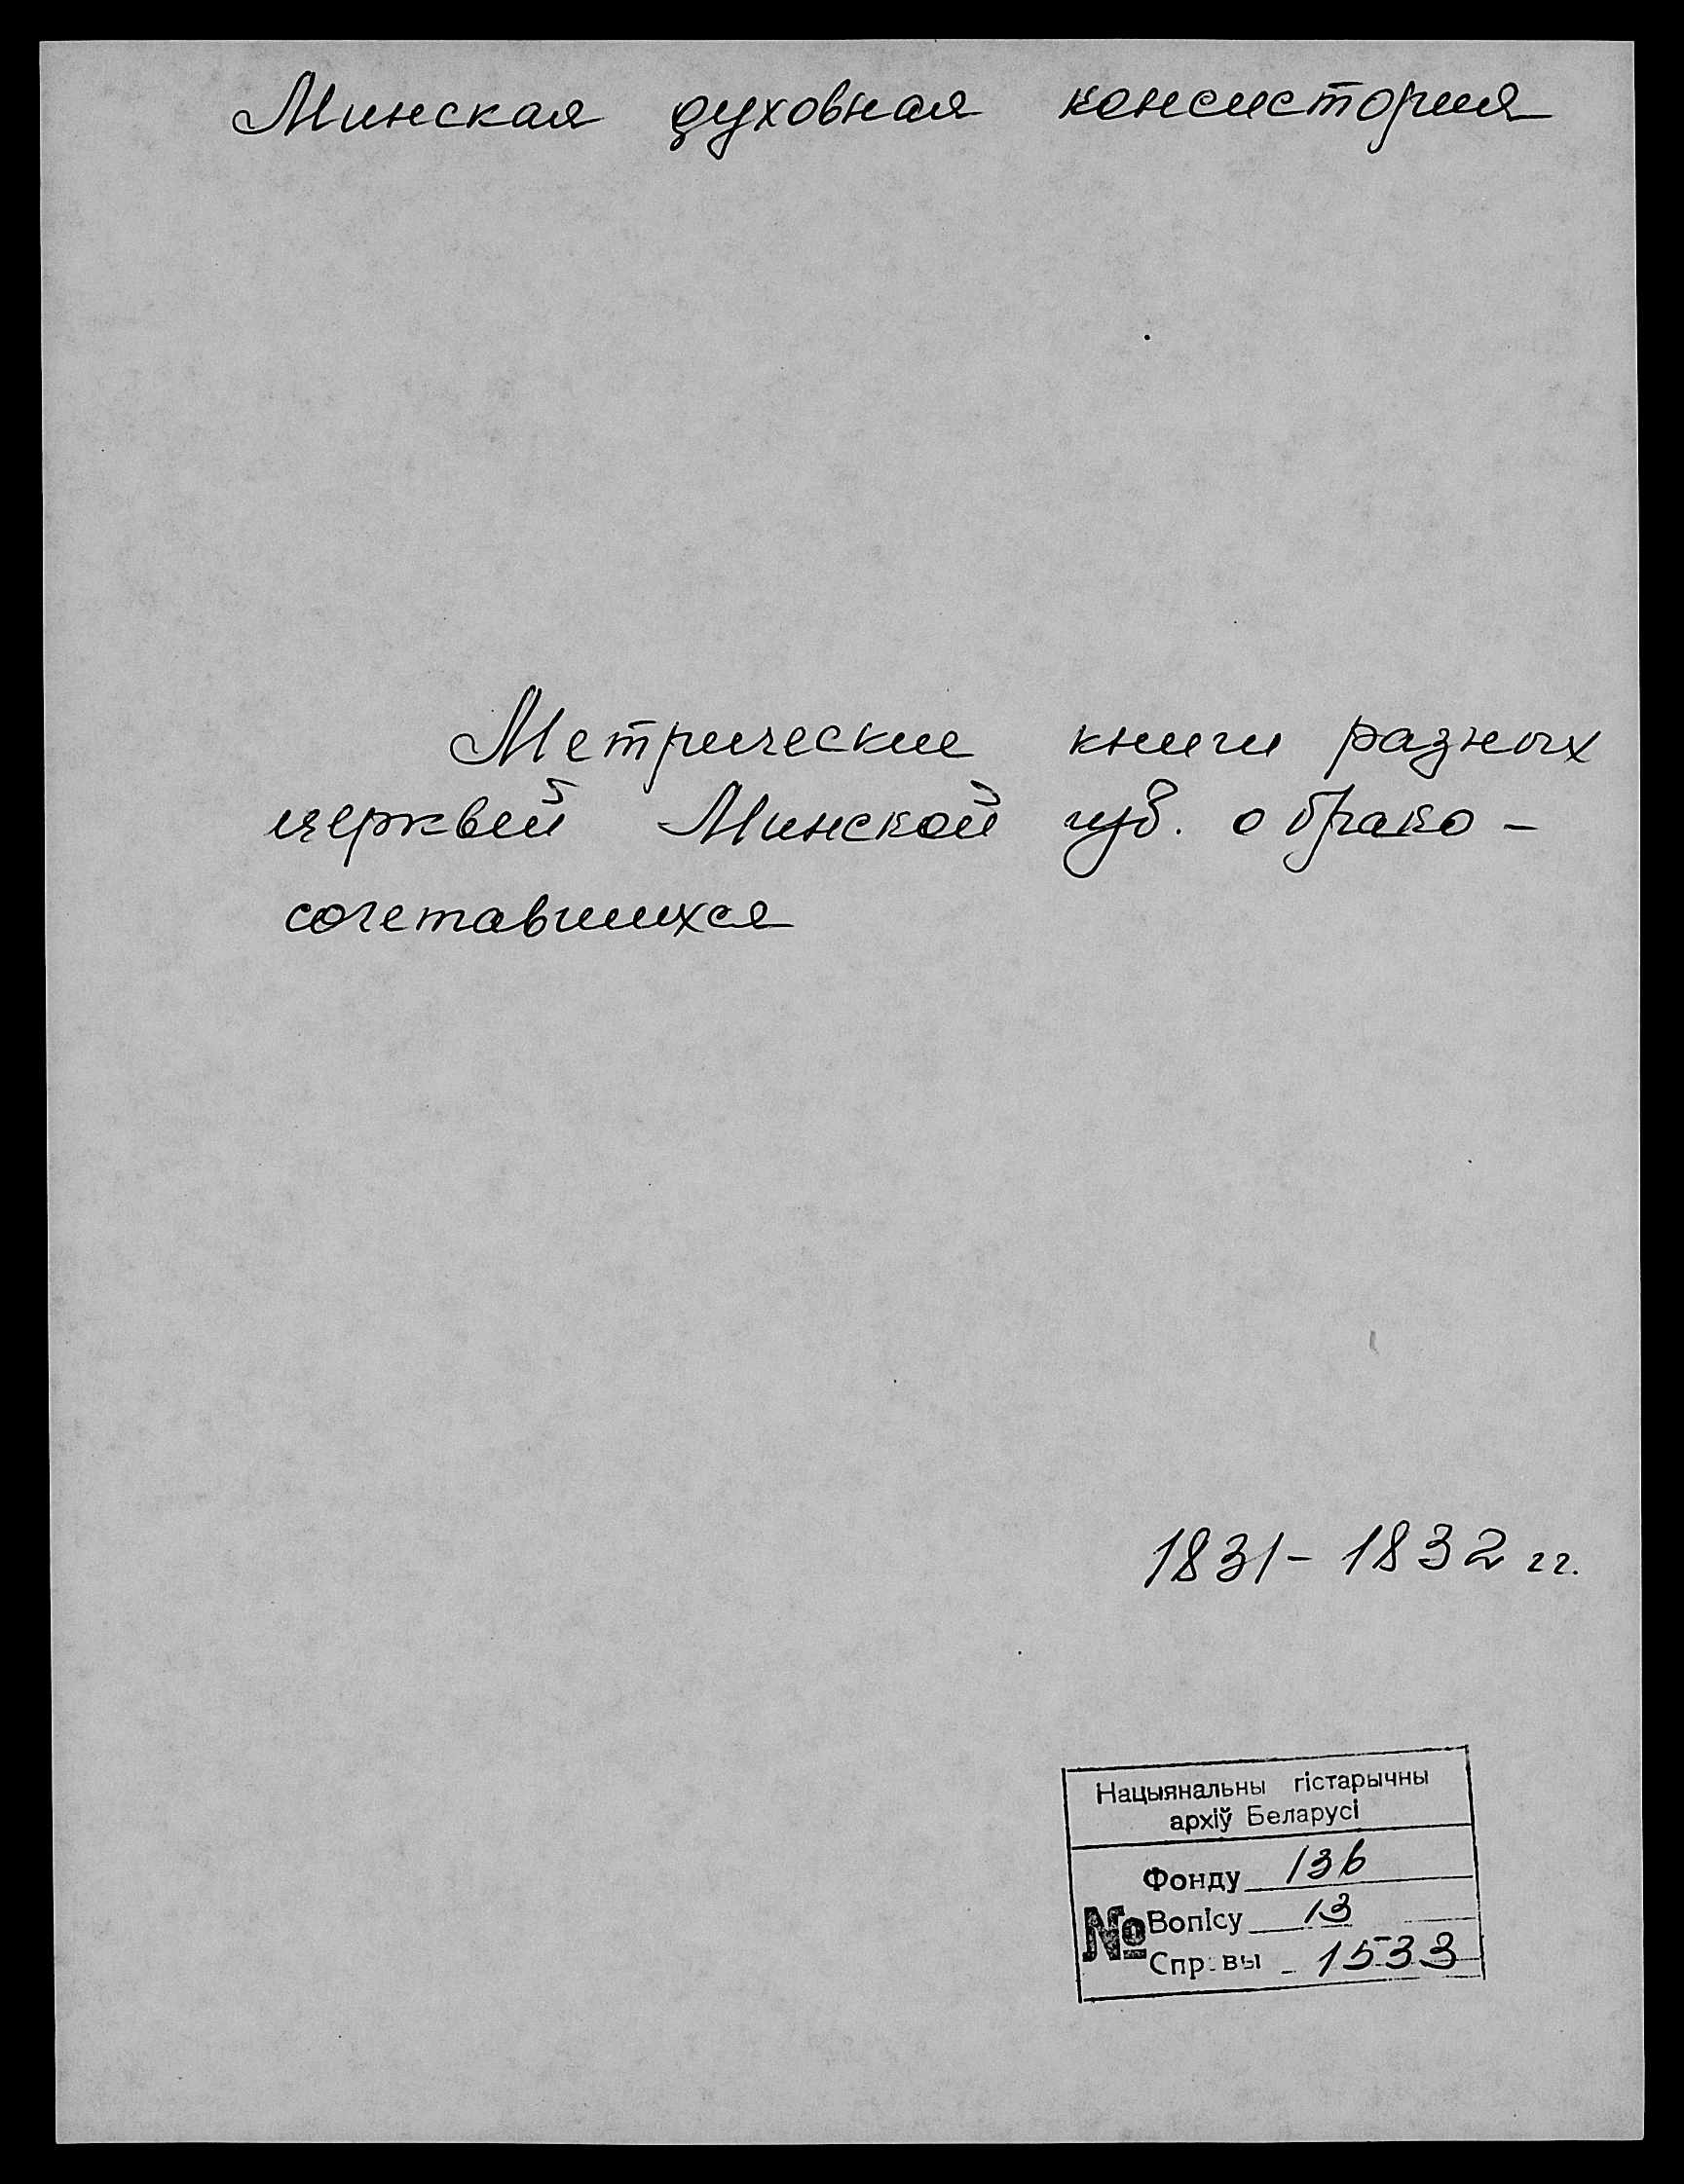 Минская духовная консистория
Метрические книги разных
церквей Минской губ. о брако-
сочетавшихся
1831-1832 гг.
Нацыянальны гістарычны
архіў Беларусі
Фонду 136
№ Вопісу 13
Справы 1533